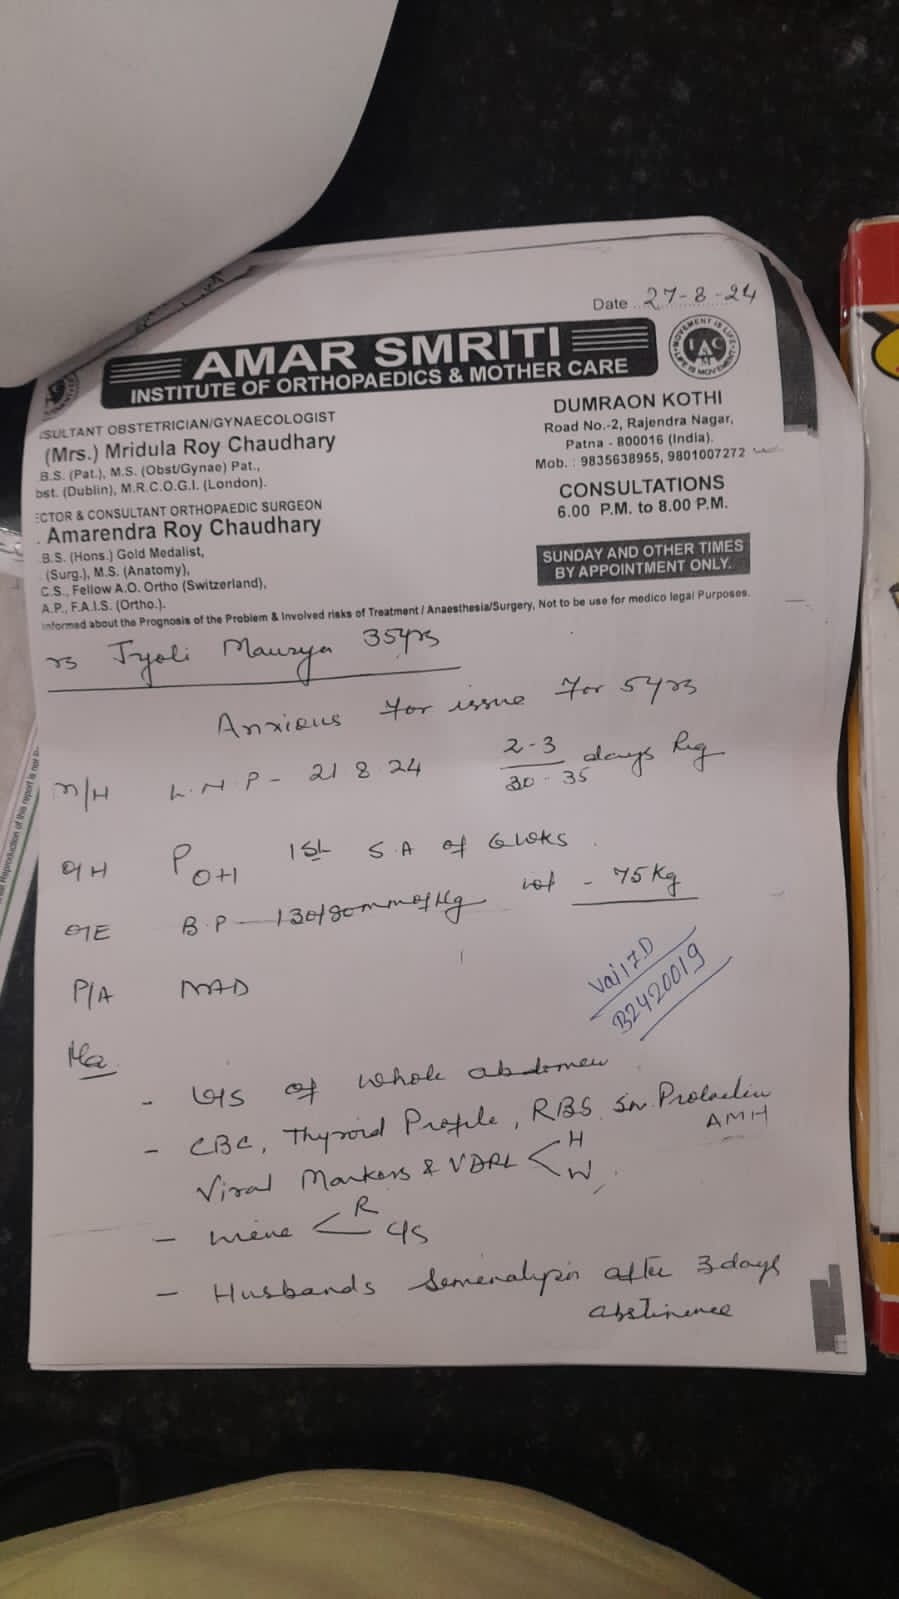 Date 27-8-24
AMAR SMRITI
INSTITUTE OF ORTHOPAEDICS & MOTHER CARE
MOVEMENT IS LIFE
LIFE IS MOVEMENT
SULTANT OBSTETRICIAN/GYNAECOLOGIST
(Mrs.) Mridula Roy Chaudhary
B.S. (Pat.), M.S. (Obst/Gynae) Pat.,
bst. (Dublin), M.R.C.O.G.I. (London).
ECTOR & CONSULTANT ORTHOPAEDIC SURGEON
. Amarendra Roy Chaudhary
B.S. (Hons.) Gold Medalist,
(Surg.), M.S. (Anatomy),
C.S., Fellow A.O. Ortho (Switzerland),
A.P., F.A.I.S. (Ortho.).
DUMRAON KOTHI
Road No.-2, Rajendra Nagar,
Patna - 800016 (India).
Mob. : 9835638955, 9801007272
CONSULTATIONS
6.00 P.M. to 8.00 P.M.
SUNDAY AND OTHER TIMES
BY APPOINTMENT ONLY.
informed about the Prognosis of the Problem & Involved risks of Treatment / Anaesthesia/Surgery, Not to be use for medico legal Purposes.
rs Jyoti Maurya 35yrs
Anxious for issue for 5yrs
M/H L.M.P - 21 8 24 2-3/30-35 days Reg
O/H P0+1 1st S.A of 6wks
O/E B.P - 130/80mmofHg wt - 75kg
P/A NAD
B2420019
- U/S of whole abdomen
- CBC, Thyroid Profile, RBS, Sr. Prolactin
AMH
Viral Markers & VDRL < H W
- urine < R C/S
- Husbands Semenalysis after 3days
abstinence
Reproduction of this report is not